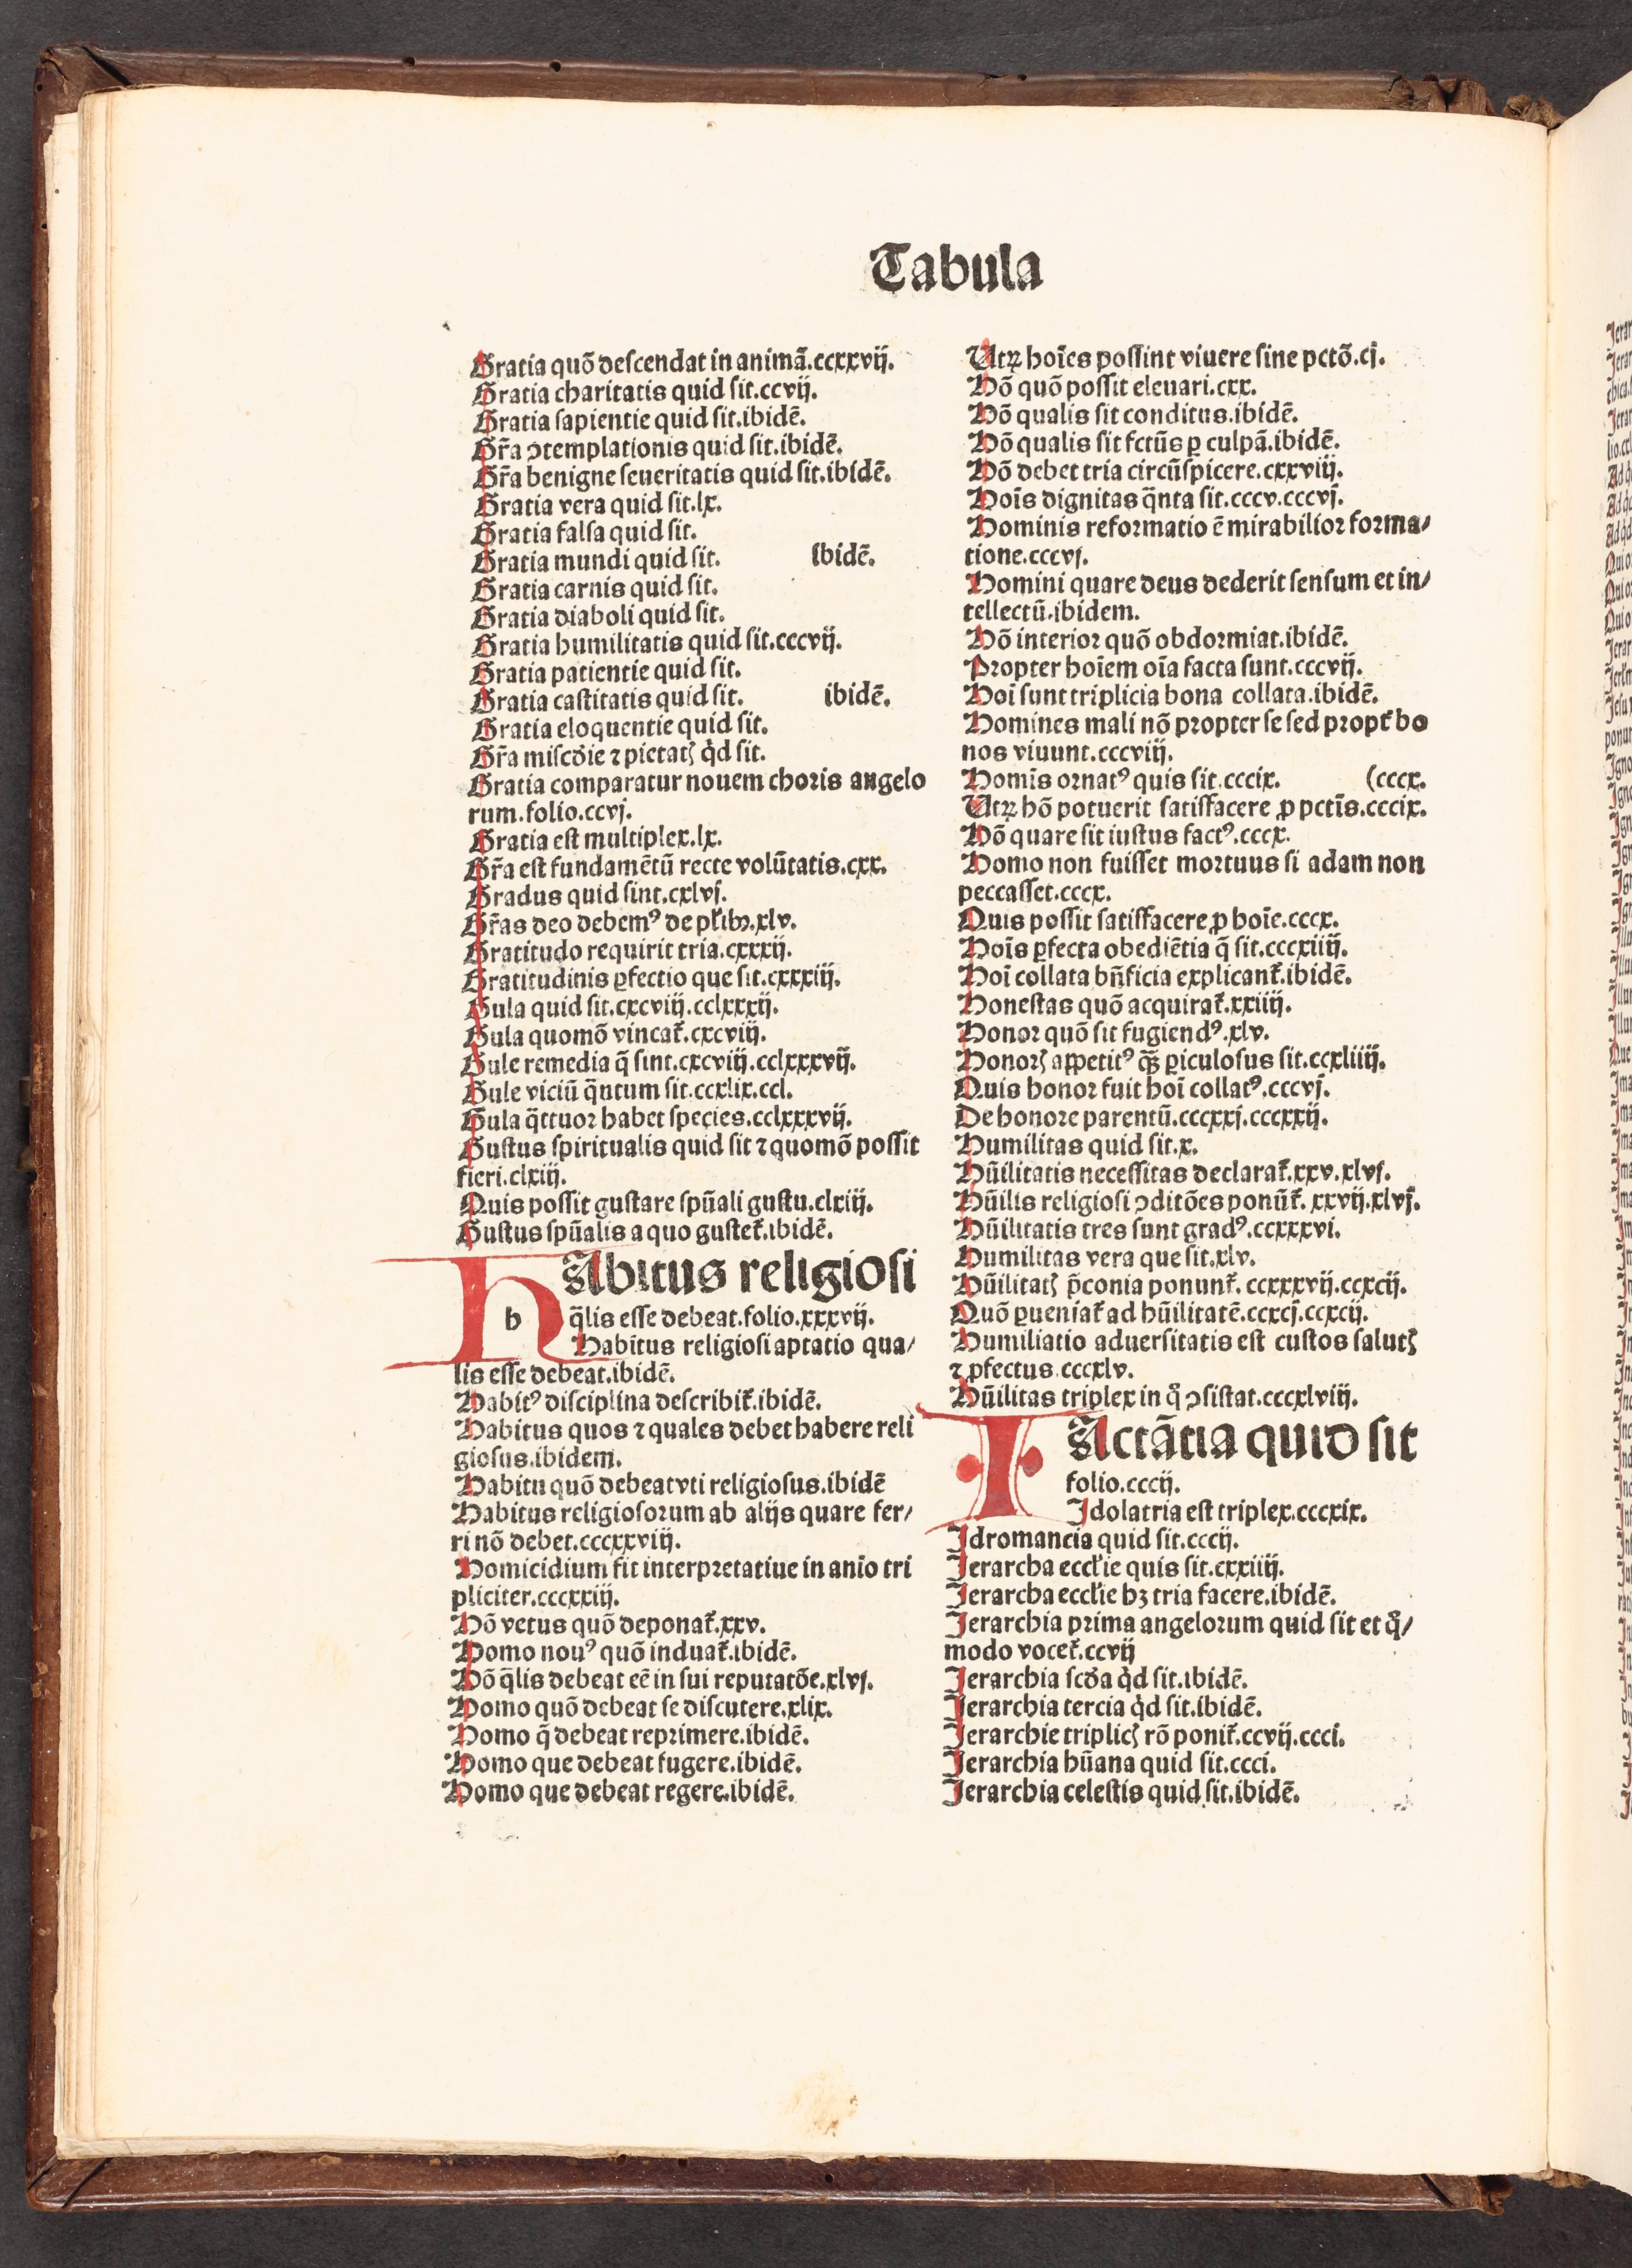 Tabula
Gratia quõ descendat in animã.ccxxvij.
Gratia charitatis quid sit.ccvij.
Gratia sapientie quid sit.ibidẽ.
Gr̃a ↄtemplationis quid sit.ibidẽ.
Gr̃a benigne seueritatis quid sit.ibidẽ.
Gratia vera quid sit.lx.
Gratia falsa quid sit.
Gratia mundi quid sit. Ibidẽ.
Gratia carnis quid sit.
Gratia diaboli quid sit.
Gratia humilitatis quid sit.cccvij.
Gratia patientie quid sit.
Gratia castitatis quid sit. ibidẽ.
Gratia eloquentie quid sit.
Gr̃a misc̃die ⁊ pietatꝭ q̇d sit.
Gratia comparatur nouem choris angelo
rum.folio.ccvj.
Gratia est multiplex.lx.
Gr̃a est fundamẽtũ recte volũtatis.cxx.
Gradus quid sint.cxlvj.
Gr̃as deo debemꝰ de pl̃ibꝰ.xlv.
Gratitudo requirit tria.cxxxij.
Gratitudinis ꝑfectio que sit.cxxxiij.
Gula quid sit.cxcviij.cclxxxij.
Gula quomõ vincat᷑.cxcviij.
Gule remedia q̃ sint.cxcviij.cclxxxvij.
Gule viciũ q̃ntum sit.ccxlix.ccl.
Gula q̃ttuor habet species.cclxxxvij.
Gustus spiritualis quid sit ⁊ quomõ possit
fieri.clxiij.
Quis possit gustare spũali gustu.clxiij.
Gustus spũalis a quo gustet᷑.ibidẽ.
HAbitus religiosi
h q̃lis esse debeat.folio.xxxvij.
Habitus religiosi aptatio qua/
lis esse debeat.ibidẽ.
Habitꝰ disciplina describit᷑.ibidẽ.
Habitus quos ⁊ quales debet habere reli
giosus.ibidem.
Habitu quõ debeat vti religiosus.ibidẽ
Habitus religiosorum ab alijs quare fer/
ri nõ debet.cccxxviij.
Homicidium fit interpretatiue in anio tri
pliciter.cccxxiij.
Hõ vetus quõ deponat᷑.xxv.
Homo nouꝰ quõ induat᷑.ibidẽ.
Hõ q̃lis debeat eẽ in sui reputatõe.xlvj.
Homo quõ debeat se discutere.xlix.
Homo q̃ debeat reprimere.ibidẽ.
Homo que debeat fugere.ibidẽ.
Homo que debeat regere.ibidẽ.
Utꝝ hoĩes possint viuere sine pctõ.cj.
Hõ quõ possit eleuari.cxx.
Hõ qualis sit conditus.ibidẽ.
Hõ qualis sit fctũs ꝑ culpã.ibidẽ.
Hõ debet tria circũspicere.cxxviij.
Hoĩs dignitas q̃nta sit.cccv.cccvj.
Hominis reformatio ẽ mirabilior forma/
tione.cccvj.
Homini quare deus dederit sensum et in/
tellectũ.ibidem.
Hõ interior quõ obdormiat.ibidẽ.
Propter hoĩem oĩa facta sunt.cccvij.
Hoĩ sunt triplicia bona collata.ibidẽ.
Homines mali nõ propter se sed propt᷑ bo
nos viuunt.cccviij.
Homĩs ornatꝰ quis sit.cccix. (cccx.
Utꝝ hõ potuerit satisfacere ꝓ pctĩs.cccix.
Hõ quare sit iustus factꝰ.cccx.
Homo non fuisset mortuus si adam non
peccasset.cccx.
Quis possit satisfacere ꝓ hoĩe.cccx.
Hoĩs ꝑfecta obediẽtia q̃ sit.cccxiiij.
Hoĩ collata bñficia explicant᷑.ibidẽ.
Honestas quõ acquirat᷑.xxiiij.
Honor quõ sit fugiendꝰ.xlv.
Honorꝭ appetitꝰ q̃ꝫ ꝑiculosus sit.ccxliiij.
Quis honor fuit hoĩ collatꝰ.cccvj.
De honore parentũ.cccxxj.cccxxij.
Humilitas quid sit.x.
Hũilitatis necessitas declarat᷑.xxv.xlvj.
Hũilis religiosi ↄditões ponũt᷑.xxvij.xlvj.
Hũilitatis tres sunt gradꝰ.ccxxxvi.
Humilitas vera que sit.xlv.
Hũilitatꝭ p̃conia ponunt᷑.ccxxxvij.ccxcij.
Quõ ꝑueniat᷑ ad hũilitatẽ.ccxcj.ccxcij.
Humiliatio aduersitatis est custos salutꝭ
⁊ ꝓfectus.cccxlv.
Hũilitas triplex in q̊ ↄsistat.cccxlviij.
IActãtia quid sit
folio.cccij.
Idolatria est triplex.cccxix.
Idromancia quid sit.cccij.
Ierarcha eccl̃ie quis sit.cxxiiij.
Ierarcha eccl̃ie hꝫ tria facere.ibidẽ.
Ierarchia prima angelorum quid sit et q̊/
modo vocet᷑.ccvij
Ierarchia sc̃da q̇d sit.ibidẽ.
Ierarchia tercia q̇d sit.ibidẽ.
Ierarchie triplicꝭ rõ ponit᷑.ccvij.ccci.
Ierarchia hũana quid sit.ccci.
Ierarchia celestis quid sit.ibidẽ.